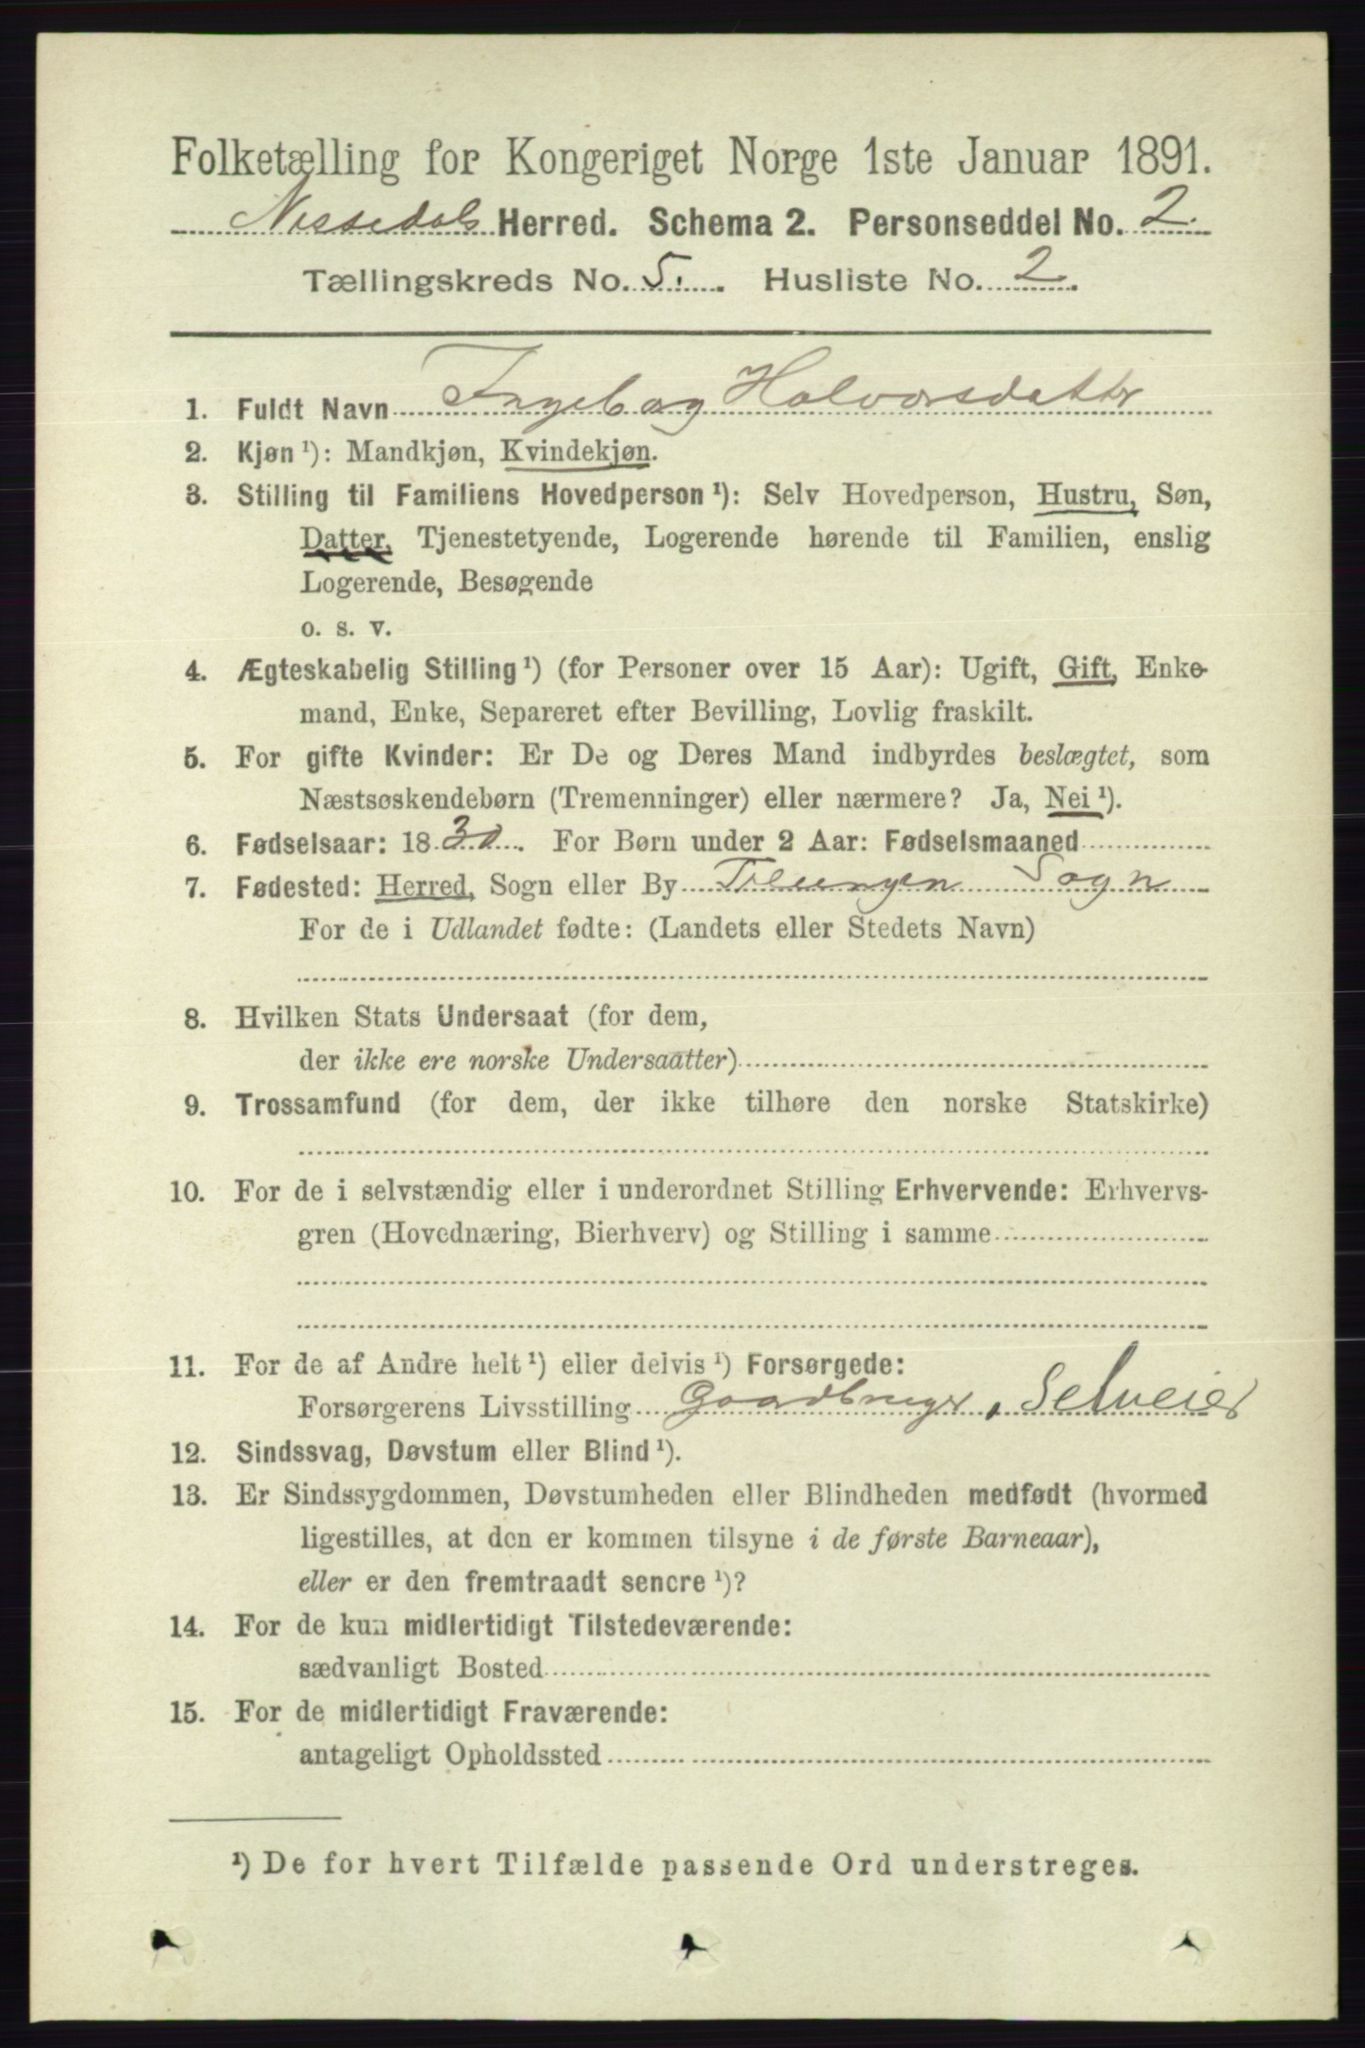 Folketælling for Kongeriget Norge 1ste Januar 1891.
Nissedals Herred. Schema 2. Personseddel No. 2.
Tællingskreds No. 5. Husliste No. 2.
1. Fuldt Navn Ingeborg Halvorsdatter
2. Kjøn ¹): Mandkjøn, Kvindekjøn.
3. Stilling til Familiens Hovedperson ¹): Selv Hovedperson, Hustru, Søn,
Datter, Tjenestetyende, Logerende hørende til Familien, enslig
Logerende, Besøgende
o. s. v.
4. Ægteskabelig Stilling ¹) (for Personer over 15 Aar): Ugift, Gift, Enke-
mand, Enke, Separeret efter Bevilling, Lovlig fraskilt.
5. For gifte Kvinder: Er De og Deres Mand indbyrdes beslægtet, som
Næstsøskendebørn (Tremenninger) eller nærmere? Ja, Nei ¹).
6. Fødselsaar: 1830. For Børn under 2 Aar: Fødselsmaaned
7. Fødested: Herred, Sogn eller By Treungen Sogn
For de i Udlandet fødte: (Landets eller Stedets Navn)
8. Hvilken Stats Undersaat (for dem,
der ikke ere norske Undersaatter)
9. Trossamfund (for dem, der ikke tilhøre den norske Statskirke)
10. For de i selvstændig eller i underordnet Stilling Erhvervende: Erhvervs-
gren (Hovednæring, Bierhverv) og Stilling i samme
11. For de af Andre helt ¹) eller delvis ¹) Forsørgede:
Forsørgerens Livsstilling Gaardbruger, Selveier
12. Sindssvag, Døvstum eller Blind ¹).
13. Er Sindssygdommen, Døvstumheden eller Blindheden medfødt (hvormed
ligestilles, at den er kommen tilsyne i de første Barneaar),
eller er den fremtraadt senere ¹)?
14. For de kun midlertidigt Tilstedeværende:
sædvanligt Bosted
15. For de midlertidigt Fraværende:
antageligt Opholdssted
¹) De for hvert Tilfælde passende Ord understreges.